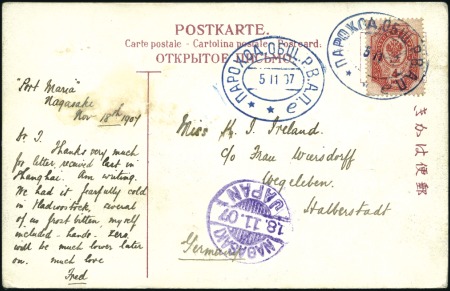 POSTKARTE.
Carte postale - Cartolina postale - Postcard.
ОТКРЫТОЕ ПИСЬМО.
ПАРОХОД. ОБЩ. Р.В.А.П.
5 11 07
ПАРОХОД. ОБЩ. Р.В.А.П.
5 11
きかは便郵
"Port Maria"
Nagasaki
Nov 18th 1907
Dr I.
Thanks very much
for letter received last in
Shanghai. Am writing.
We had it fearfully cold
in Vladivostock, several
of us frost bitten myself
included - hands.
will be much lower later
on. much love
Fred
Miss K. I. Ireland.
c/o Frau Wiersdorff
Wegeleben.
Halberstadt
Germany
NAGASAKI
18.11.07
JAPAN